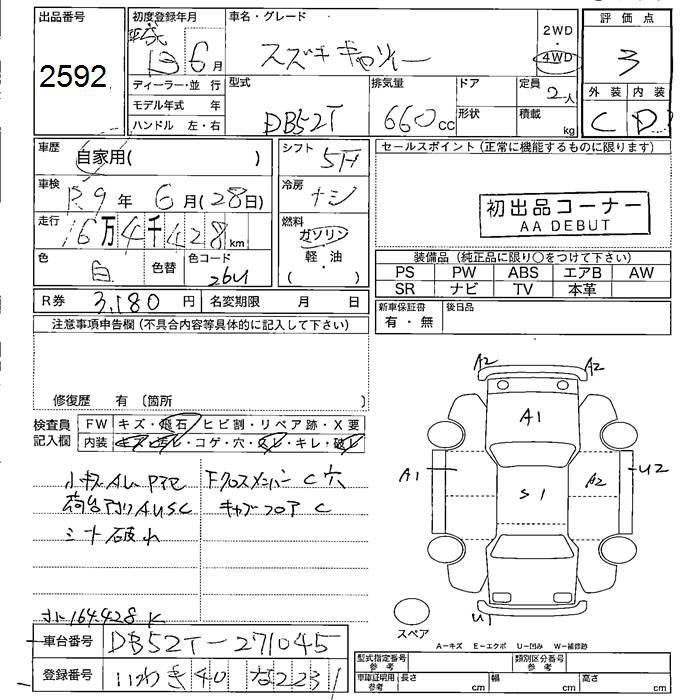 出品番号
2592
初度登録年月
平成
13 6 月
車名・グレード
スズキ キャリィー
2WD
4WD
評価点
3
外装 内装
C D
ディーラー・並行
モデル年式 年
ハンドル 左・右
型式
DB52T
排気量
660 cc
ドア
形状
定員
2人
積載
kg
車歴
自家用( )
シフト
5F
セールスポイント(正常に機能するものに限ります)
車検
R9年 6月(28日)
冷房
ナシ
初出品コーナー
AA DEBUT
走行
16万4千428km
燃料
ガソリン
軽・油
( )
色
白
色替
色コード
26U
装備品(純正品に限り○をつけて下さい)
PS PW ABS エアB AW
SR ナビ TV 本革
R券 3,180円
名変期限 月 日
新車保証書
有・無
後日品
注意事項申告欄(不具合内容等具体的に記入して下さい)
修復歴 有 〔箇所 〕
検査員
記入欄
FW キズ・飛石・ヒビ割・リペア跡・X要
内装 キズ・汚レ・コゲ・穴・スレ・キレ・破レ
小キズ AU P アセ
Fクロスメンバー C 穴
荷台アオリ AUSC
キャブフロア C
シート破れ
オト 164.428 K
A2
A2
A1
A1
S1
A2
U2
U1
スペア
A－キズ E－エクボ U－凹み W－補修跡
車台番号 DB52T-271045
登録番号 いわき 40 な 2231
型式指定番号
参考
類別区分番号
参考
車庫証明用
参考
長さ cm
幅 cm
高さ cm